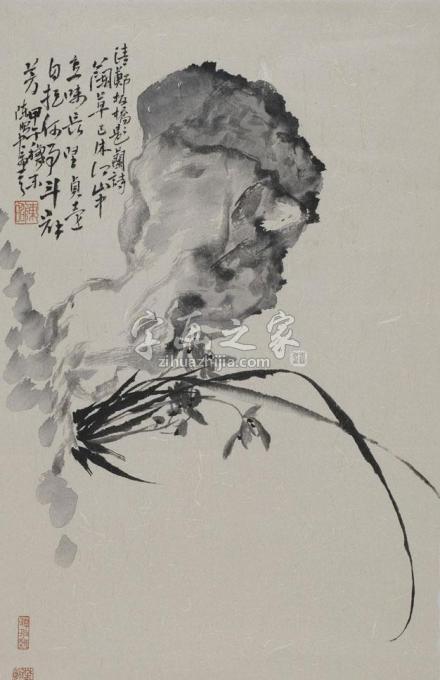 清鄭板橋題蘭詩
蘭草已成行山中
意味長堅貞還
自抱何事斗群
芳甲子
字画之家
zihuazhijia.com